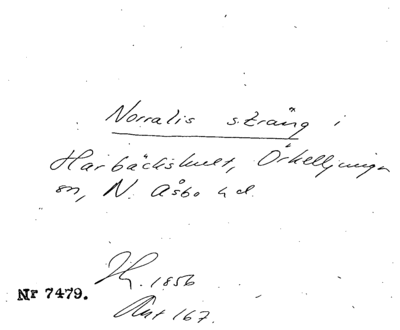 Norralis sträng i
Harbäckshult, Örkelljunga
sn, N. Åsbo hd.
1856
Nr 7479.
Ant 167.